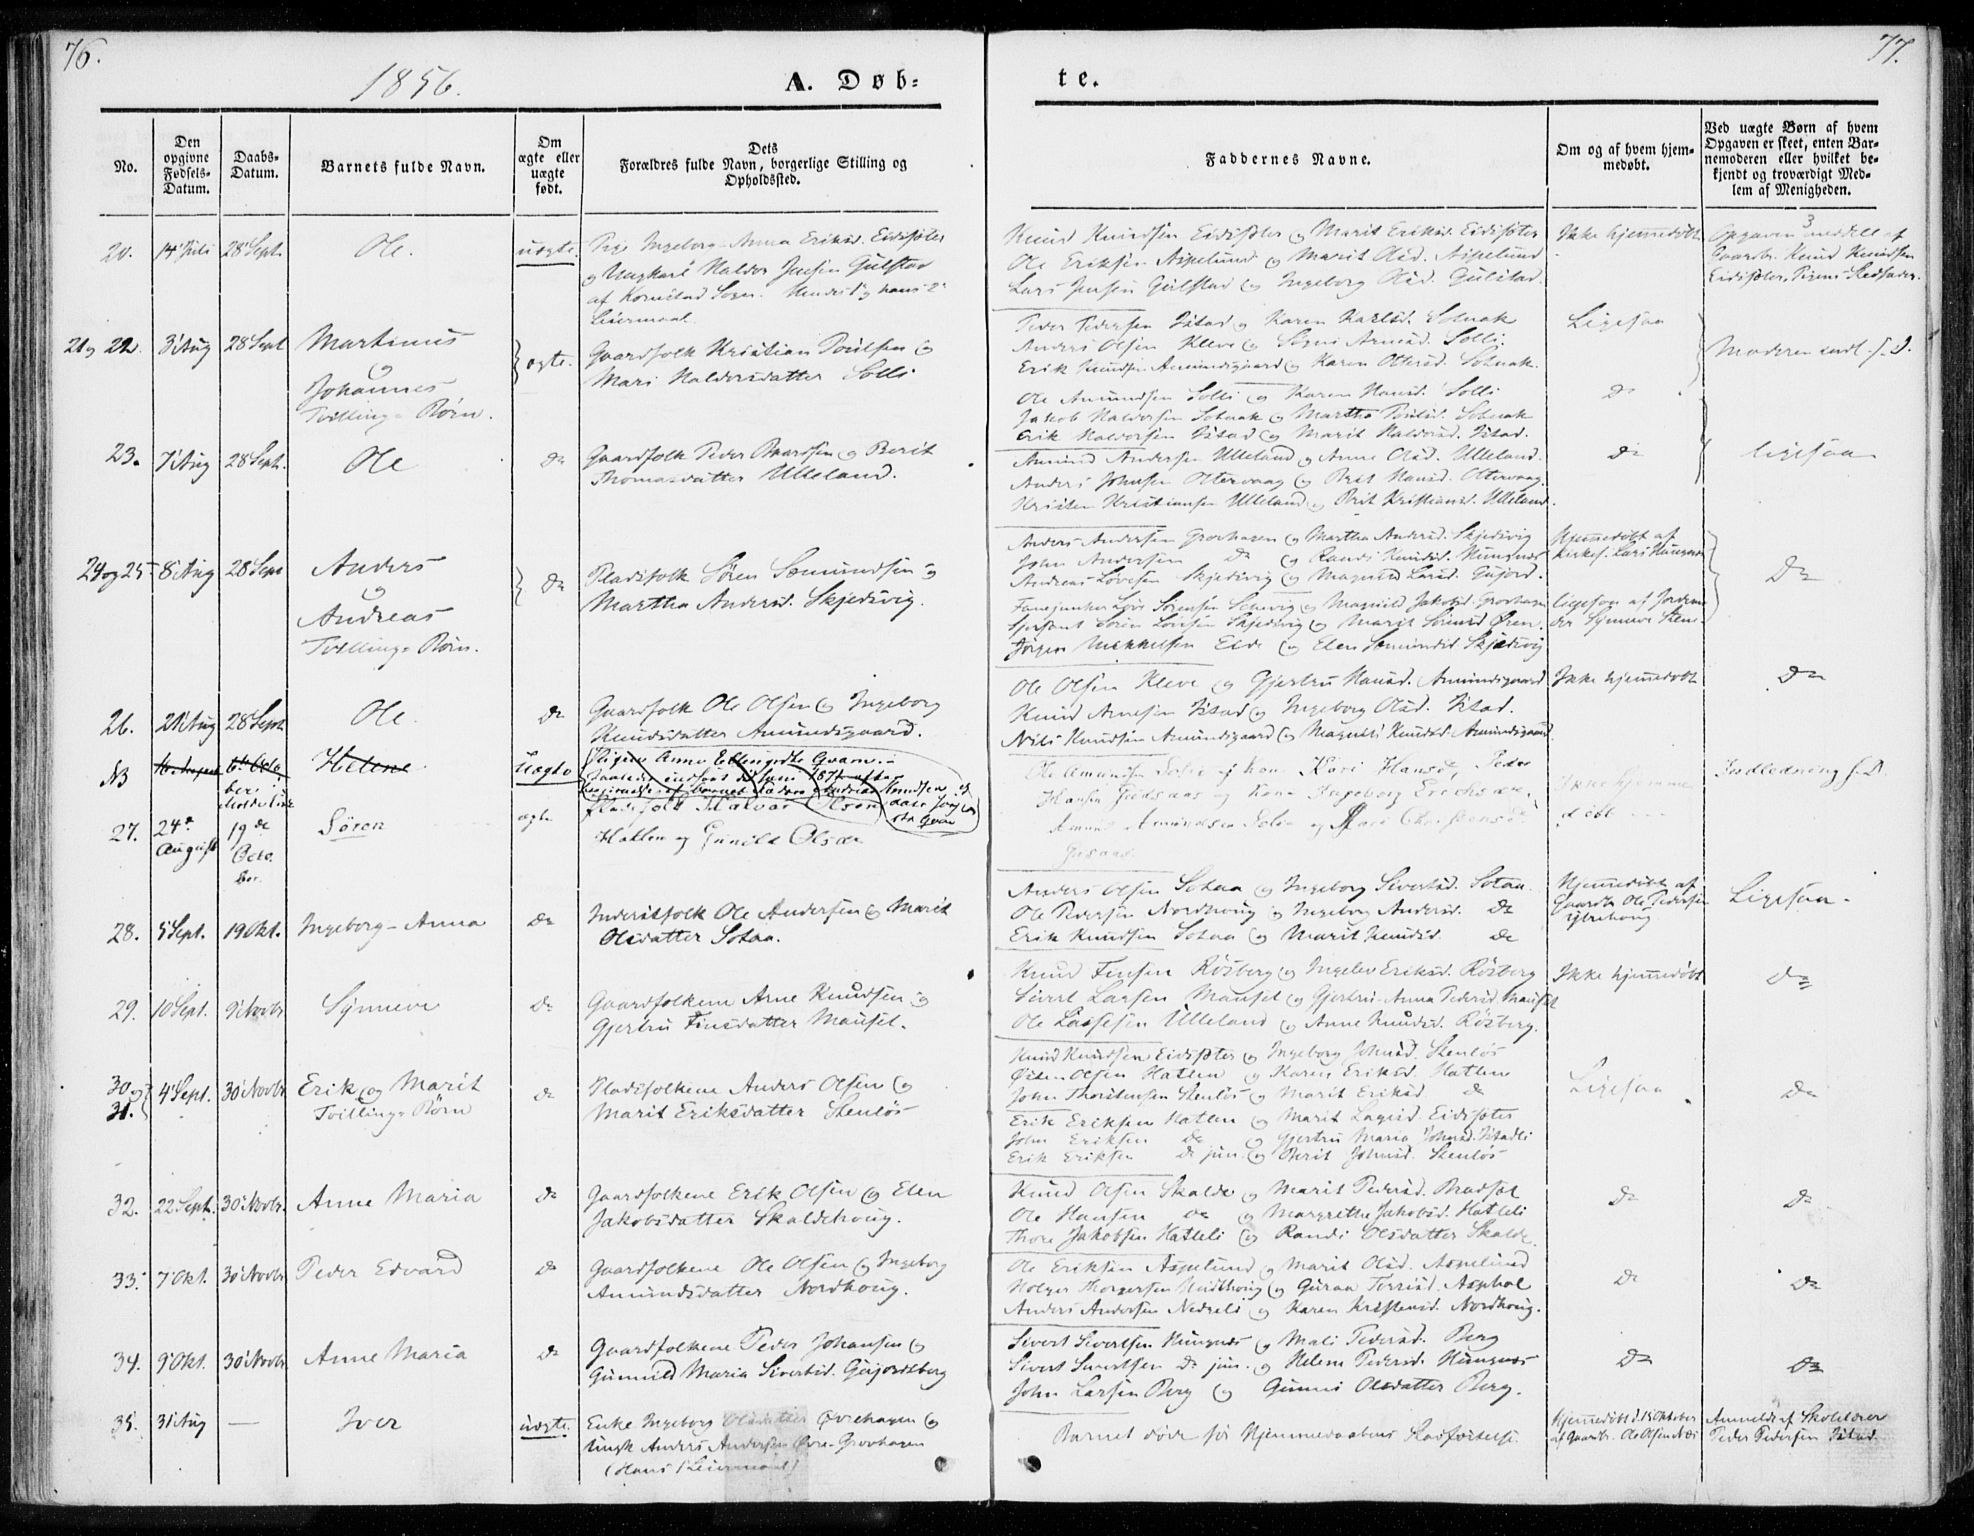 76.
77.
1856.
A. Døb-
te.
No.
Den opgivne Fødsels-Datum.
Daabs-Datum.
Barnets fulde Navn.
Om ægte eller uægte født.
Dets Forældres fulde Navn, borgerlige Stilling og Opholdssted.
Faddernes Navne.
Om og af hvem hjem-
medøbt.
Ved uægte Børn af hvem
Opgaven er skeet, enten Bar-
nemoderen eller hvilket be-
kjendt og troværdigt Med-
lem af Menigheden.
20. 14 Juli 28 Sept. Ole. uægte. Pige Ingeborg-Anna Eriksd. Eidsæter
og Ungkarl Haldor Jensen Gulstad
af Kornstad Sogn. Hendes 1 og hans 2
Leiermaal.
Knud Knudsen Eidsæter og Marit Eriksd. Eidsæter
Ole Eriksen Aspelund og Marit Olsd. Aspelund
Lars Jensen Gulstad og Ingeborg Olsd. Gulstad.
Ikke hjemmedøbt
Opgaven meddelt af
Gaardbr. Knud Knudsen
Eidsæter, Pigens Stedfader.
21 og 22. 3 Aug 28 Sept Martinus
og
Johannes
Tvilling-Børn.
ægte.
Gaardfolk Kristian Poulsen og
Mari Haldorsdatter Solli
Peder Pedersen Istad og Karen Karlsd. Sotnak
Anders Olsen Kleve og Signi Arnesd. Solli.
Erik Knudsen Amundsgaard og Karen Ottersd. Sotnak.
Ole Amundsen Solli og Karen Hansd. Solli
Jakob Haldorsen Sotnak og Martha Poulsd. Sotnak
Erik Haldorsen Istad og Marit Haldorsd. Istad.
Ligesaa
Do
Moderen indl. f. D.
23. 7 Aug 28 Sept. Ole Do Gaardfolk Peder Baardsen og Berit
Thomasdatter Ulleland.
Amund Andersen Ulleland og Anne Olsd. Ulleland.
Anders Johnsen Ottervaag og Brit Hansd. Ottervaag.
Kristen Kristiansen Ulleland og Brit Kristiansd. Ulleland.
Do
ligesaa
24 og 25 8 Aug 28 Sept Anders
og
Andreas
Tvilling-Børn.
Do
Pladsfolk Søren Sæmundsen og
Martha Andersd. Skjedsvig.
Anders Andersen Grovhagen og Martha Andersd. Skjedsvig
John Andersen Do og Randi Knudsd. Hungnes
Andreas Lovesen Skjedsvig og Magnild Larsd. Gujord.
Sersjant Søren Lovesen Skjedsvig og Marit Sørensd. Øren.
Jørgen Mikkelsen Eide og Elen Sæmundsd. Skjedsvig
Hjemmedøbt af
Kirkes. Lars Hungnes
ligesaa af Jordemo-
der Synneve
Do
26. 21 Aug 28 Sept Ole. Do Gaardfolk Ole Olsen og Ingeborg
Knudsdatter Amundsgaard.
Ole Olsen Kleve og Gjertru Hansd. Amundsgaard
Knud Arnesen Istad og Ingeborg Olsd. Istad.
Nils Knudsen Amundsgaard og Magnild Knudsd. Amundsgaard
Ikke hjemmedøbt
Do
NB Helene Uægte Pigen Anne
27. 24de August 19de Octo-
ber. Søren ægte Pladsfolk Halvor Olsen
Hatlen og Gunild Olsdr
Ole Amundsen Solie og Kone Kari Hansd., Peder
Hansen og Kone Ingeborg Erichsdr,
Amund Amundsen Solie og
Ikke hjemme-
døbt
Indledning f. D.
28. 5 Sept. 19 Okt. Ingeborg-Anna Do Inderstfolk Ole Andersen og Marit
Olsdatter Sotaa.
Anders Olsen Sotaa og Ingeborg Sivertsd. Sotaa.
Ole Pedersen Nordhoug og Ingeborg Andersd. Do
Erik Knudsen Sotaa og Marit Knudsd. Do
Hjemmedøbt af
Gaardb. Ole Pedersen
Ytrehoug
Ligesaa.
29. 10 Sept. 9 Novbr Synneve Do Gaardfolkene Arne Knudsen og
Gjertru Finsdatter Mausel.
Knud Finsen Rösberg og Ingelev Eriksd. Rösberg
Sivert Larsen Mausel og Gjertru-Anna Pedersd. Mausel
Ole Lassesen Ulleland og Anne Knudsd. Rösberg.
Ikke hjemmedøbt
Do
30 og
31. 4 Sept. 30 Novbr Erik og Marit
Tvilling-Børn
Do
Pladsfolkene Anders Olsen og
Marit Eriksdatter Stenlös
Knud Knudsen Eidsæter og Ingeborg Johnsd. Stenlös
Østen Olsen Hatlen og Karen Eriksd. Hatlen
John Thorstensen Stenlös og Marit Eriksd. do
Erik Eriksen Hatlen og Marit Eidsæter
John Eriksen do og Gjertru Maria Johnsd. Istadli
Erik Eriksen do jun. og Berit Johnsd. Stenlös
Ligesaa
Do
32. 22 Sept. 30 Novbr. Anne Maria Do Gaardfolkene Erik Olsen og Elen
Jakobsdatter Skaldehoug.
Knud Olsen Skalde og Marit Pedersd. Bradsæt
Ole Hansen do og Margrethe Jakobsd. Hatleli
Thore Jakobsen Hatleli og Randi Olsdatter Skalde
Do
Do
33. 7 Okt. 30 Novbr Peder Edvard Do Gaardfolkene Ole Olsen og Ingeborg
Amundsdatter Nordhoug.
Ole Eriksen Aspelund og Marit Olsd. Aspelund
Holger Thorgersen Midthoug og Guraa Torrisd. Asphol
Anders Andersen Nedreli og Karen Kristensd. Nordhoug.
Do
Do
34. 9 Okt. 30 Novbr Anne Maria Do Gaardfolkene Peder Johansen og
Gunnild Maria Sivertsd. Gujordsberg
Sivert Sivertsen Hungnes og Mali Pedersd. Berg
Sivert Sivertsen do jun. og Helene Pedersd. Hungnes
John Larsen Berg og Gunni Olsdatter Berg.
Do
Do
35. 31 Aug — Iver uægte. Enke Ingeborg Olsdatter Øvrehagen og
Ungk. Anders Andersen Øvre-Grovhagen
(Hans 1 Leiermaal)
Barnet døde før Hjemmedaabens Stadfæstelse.
Hjemmedøbt d. 15 Oktober
af Gaardbr. Ole Olsen Næs
Anmeldt af Skolelærer
Peder Pedersen Istad.